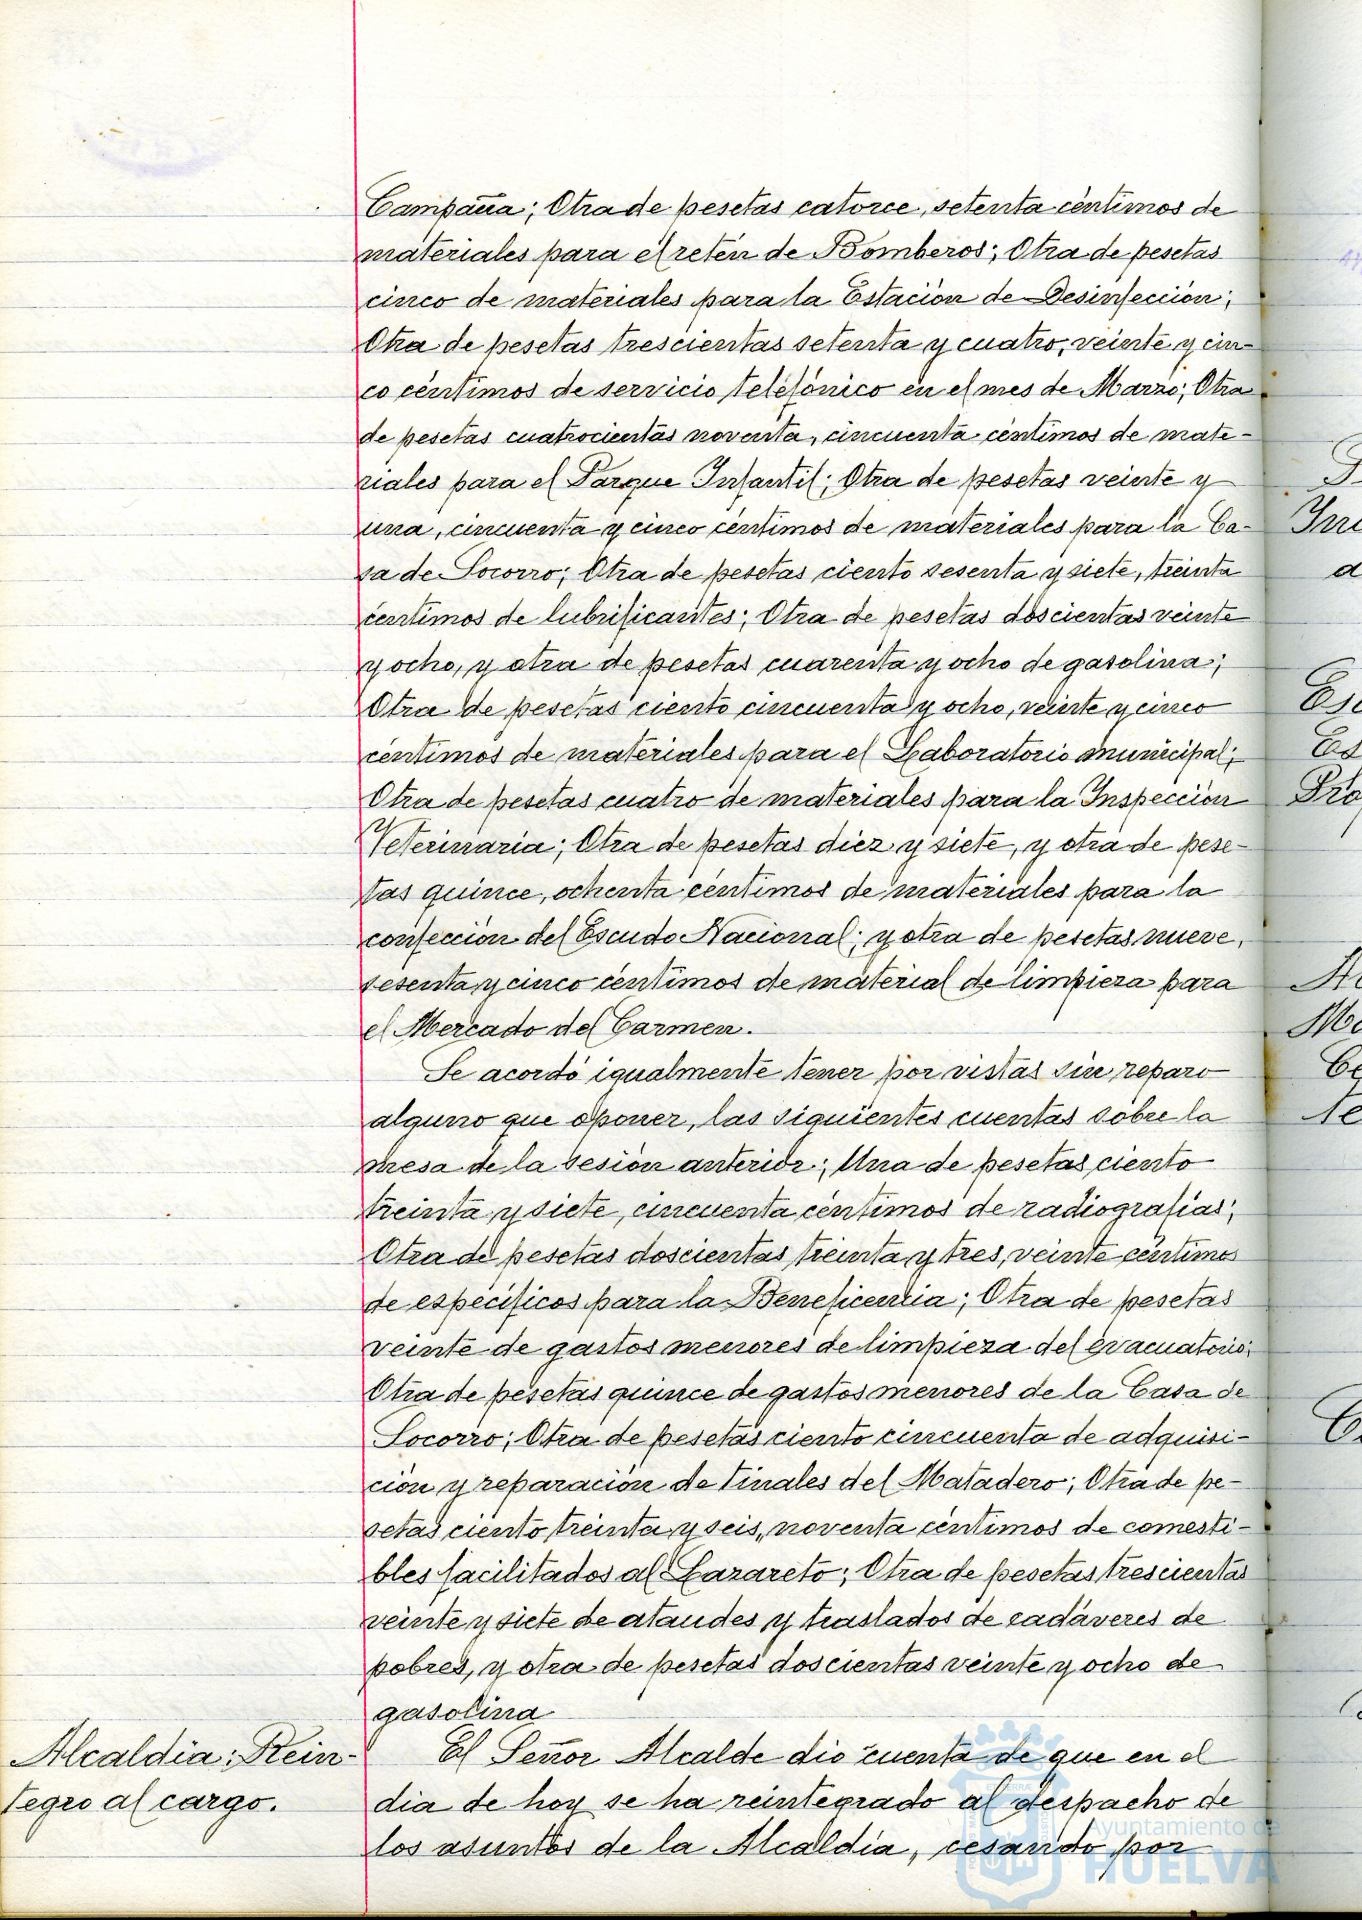 Campaña; Otra de pesetas catorce, setenta céntimos de
materiales para el retén de Bomberos; Otra de pesetas
cinco de materiales para la Estación de Desinfección;
Otra de pesetas trescientas setenta y cuatro, veinte y cin-
co céntimos de servicio telefónico en el mes de Marzo; Otra
de pesetas cuatrocientas noventa, cincuenta céntimos de mate-
riales para el Parque Infantil; Otra de pesetas veinte y
una, cincuenta y cinco céntimos de materiales para la Ca-
sa de Socorro; Otra de pesetas ciento sesenta y siete, treinta
céntimos de lubrificantes; Otra de pesetas doscientas veinte
y ocho, y otra de pesetas cuarenta y ocho de gasolina;
Otra de pesetas ciento cincuenta y ocho, veinte y cinco
céntimos de materiales para el Laboratorio municipal;
Otra de pesetas cuatro de materiales para la Inspección
Veterinaria; Otra de pesetas diez y siete, y otra de pese-
tas quince, ochenta céntimos de materiales para la
confección del Escudo Nacional; y otra de pesetas nueve,
sesenta y cinco céntimos de material de limpieza para
el Mercado del Carmen.
Se acordó igualmente tener por vistas sin reparo
alguno que oponer, las siguientes cuentas sobre la
mesa de la sesión anterior; Una de pesetas ciento
treinta y siete, cincuenta céntimos de radiografías;
Otra de pesetas doscientas treinta y tres, veinte céntimos
de específicos para la Beneficencia; Otra de pesetas
veinte de gastos menores de limpieza del evacuatorio;
Otra de pesetas quince de gastos menores de la Casa de
Socorro; Otra de pesetas ciento cincuenta de adquisi-
ción y reparación de tinales del Matadero; Otra de pe-
setas ciento treinta y seis, noventa céntimos de comesti-
bles facilitados al Lazareto; Otra de pesetas trescientas
veinte y siete de ataudes y traslados de cadáveres de
pobres, y otra de pesetas doscientas veinte y ocho de
gasolina
Alcaldía: Rein-
tegro al cargo.
El Señor Alcalde dio cuenta de que en el
día de hoy se ha reintegrado al despacho de
los asuntos de la Alcaldía, cesando por
Ayuntamiento de
HUELVA